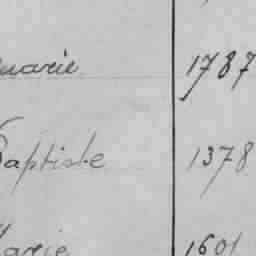 marie 1787
Baptiste 1378
Marie 1601